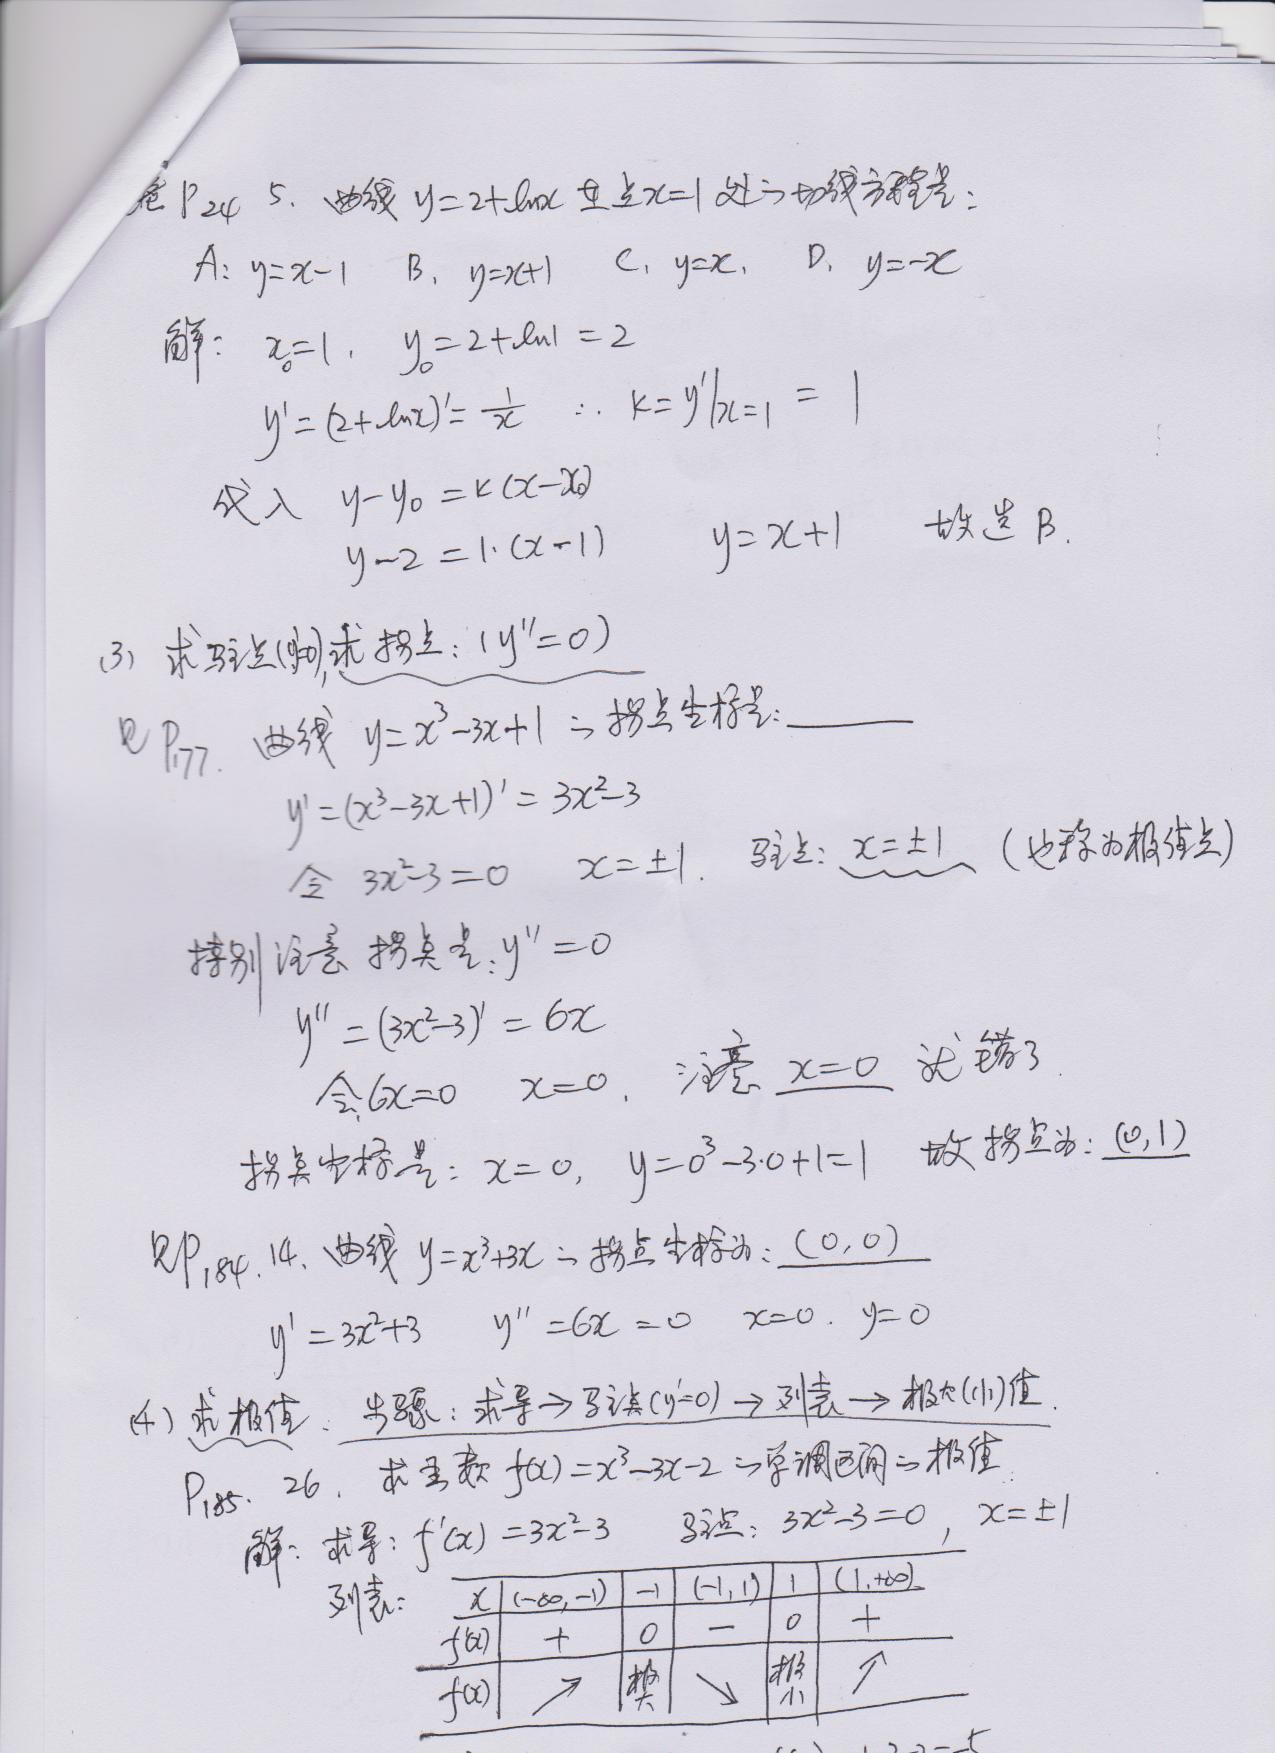 卷P24 5. 曲线 y=2+lnx 在点x=1处的切线方程是:
A: y=x-1 B. y=x+1 C. y=x. D. y=-x
解: x₀=1. y₀=2+ln1=2
y'=(2+lnx)'=1/x ∴ k=y'|x=1 = 1
代入 y-y₀=k(x-x₀)
y-2=1·(x-1) y=x+1 故选B.
(3) 求驻点(y'=0),求拐点:(y''=0)
见P177. 曲线 y=x³-3x+1的拐点坐标是:______
y'=(x³-3x+1)'=3x²-3
令 3x²-3=0 x=±1. 驻点: x=±1 (也称为极值点)
特别注意 拐点是: y''=0
y''=(3x²-3)'=6x
令6x=0 x=0. 注意 x=0 就错了.
拐点坐标是: x=0, y=0³-3·0+1=1 故拐点为: (0,1)
见P184.14. 曲线 y=x³+3x的拐点坐标为: (0,0)
y'=3x²+3 y''=6x=0 x=0. y=0
(4) 求极值. 步骤: 求导→驻点(y'=0)→列表→极大(小)值.
P185. 26. 求函数 f(x)=x³-3x-2的单调区间的极值.
解: 求导: f'(x)=3x²-3 驻点: 3x²-3=0, x=±1
列表: x (-∞,-1) -1 (-1,1) 1 (1,+∞)
f'(x) + 0 - 0 +
f(x) ↗ 极大 ↘ 极小 ↗